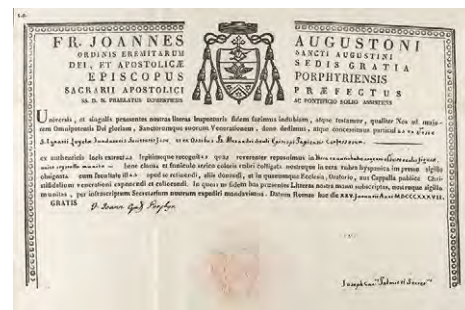 FR. JOANNES AUGUSTONI
ORDINIS EREMITARUM SANCTI AUGUSTINI
DEI, ET APOSTOLICÆ SEDIS GRATIA
EPISCOPUS PORPHYRIENSIS
SACRARII APOSTOLICI PRÆFECTUS
SS. D. N. PRAELATUS DOMESTICUS AC PONTIFICIO SOLIO ASSISTENS
Universis, et singulis praesentes nostras literas inspecturis fidem facimus indubiam, atque testamur, qualiter Nos ad majorem
Omnipotentis Dei gloriam, Sanctorumque suorum Venerationem, dono dedimus, atque concessimus
S. Ignatii Loyolae Fundatoris Societatis Jesu, et ex Ossibus
ex authenticis locis extractas legitimeque recognitas quas reverenter reposuimus in
bene clausa et funiculo serico coloris rubri colligata nostroque in cera rubra hyspanica impresso sigillo
obsignata cum facultate apud se retinendi, aliis donandi, et in quacumque Ecclesia, Oratorio, aut Cappella publicae Christifidelium
venerationi exponendi et collocandi. In quorum fidem has praesentes Literas manu subscriptas, nostroque sigillo
munitas, per infrascriptum Secretarium nostrum expediri mandavimus. Datum Romae hac die XXV. Januarii Anni MDCCCXXXVII.
GRATIS
Secret